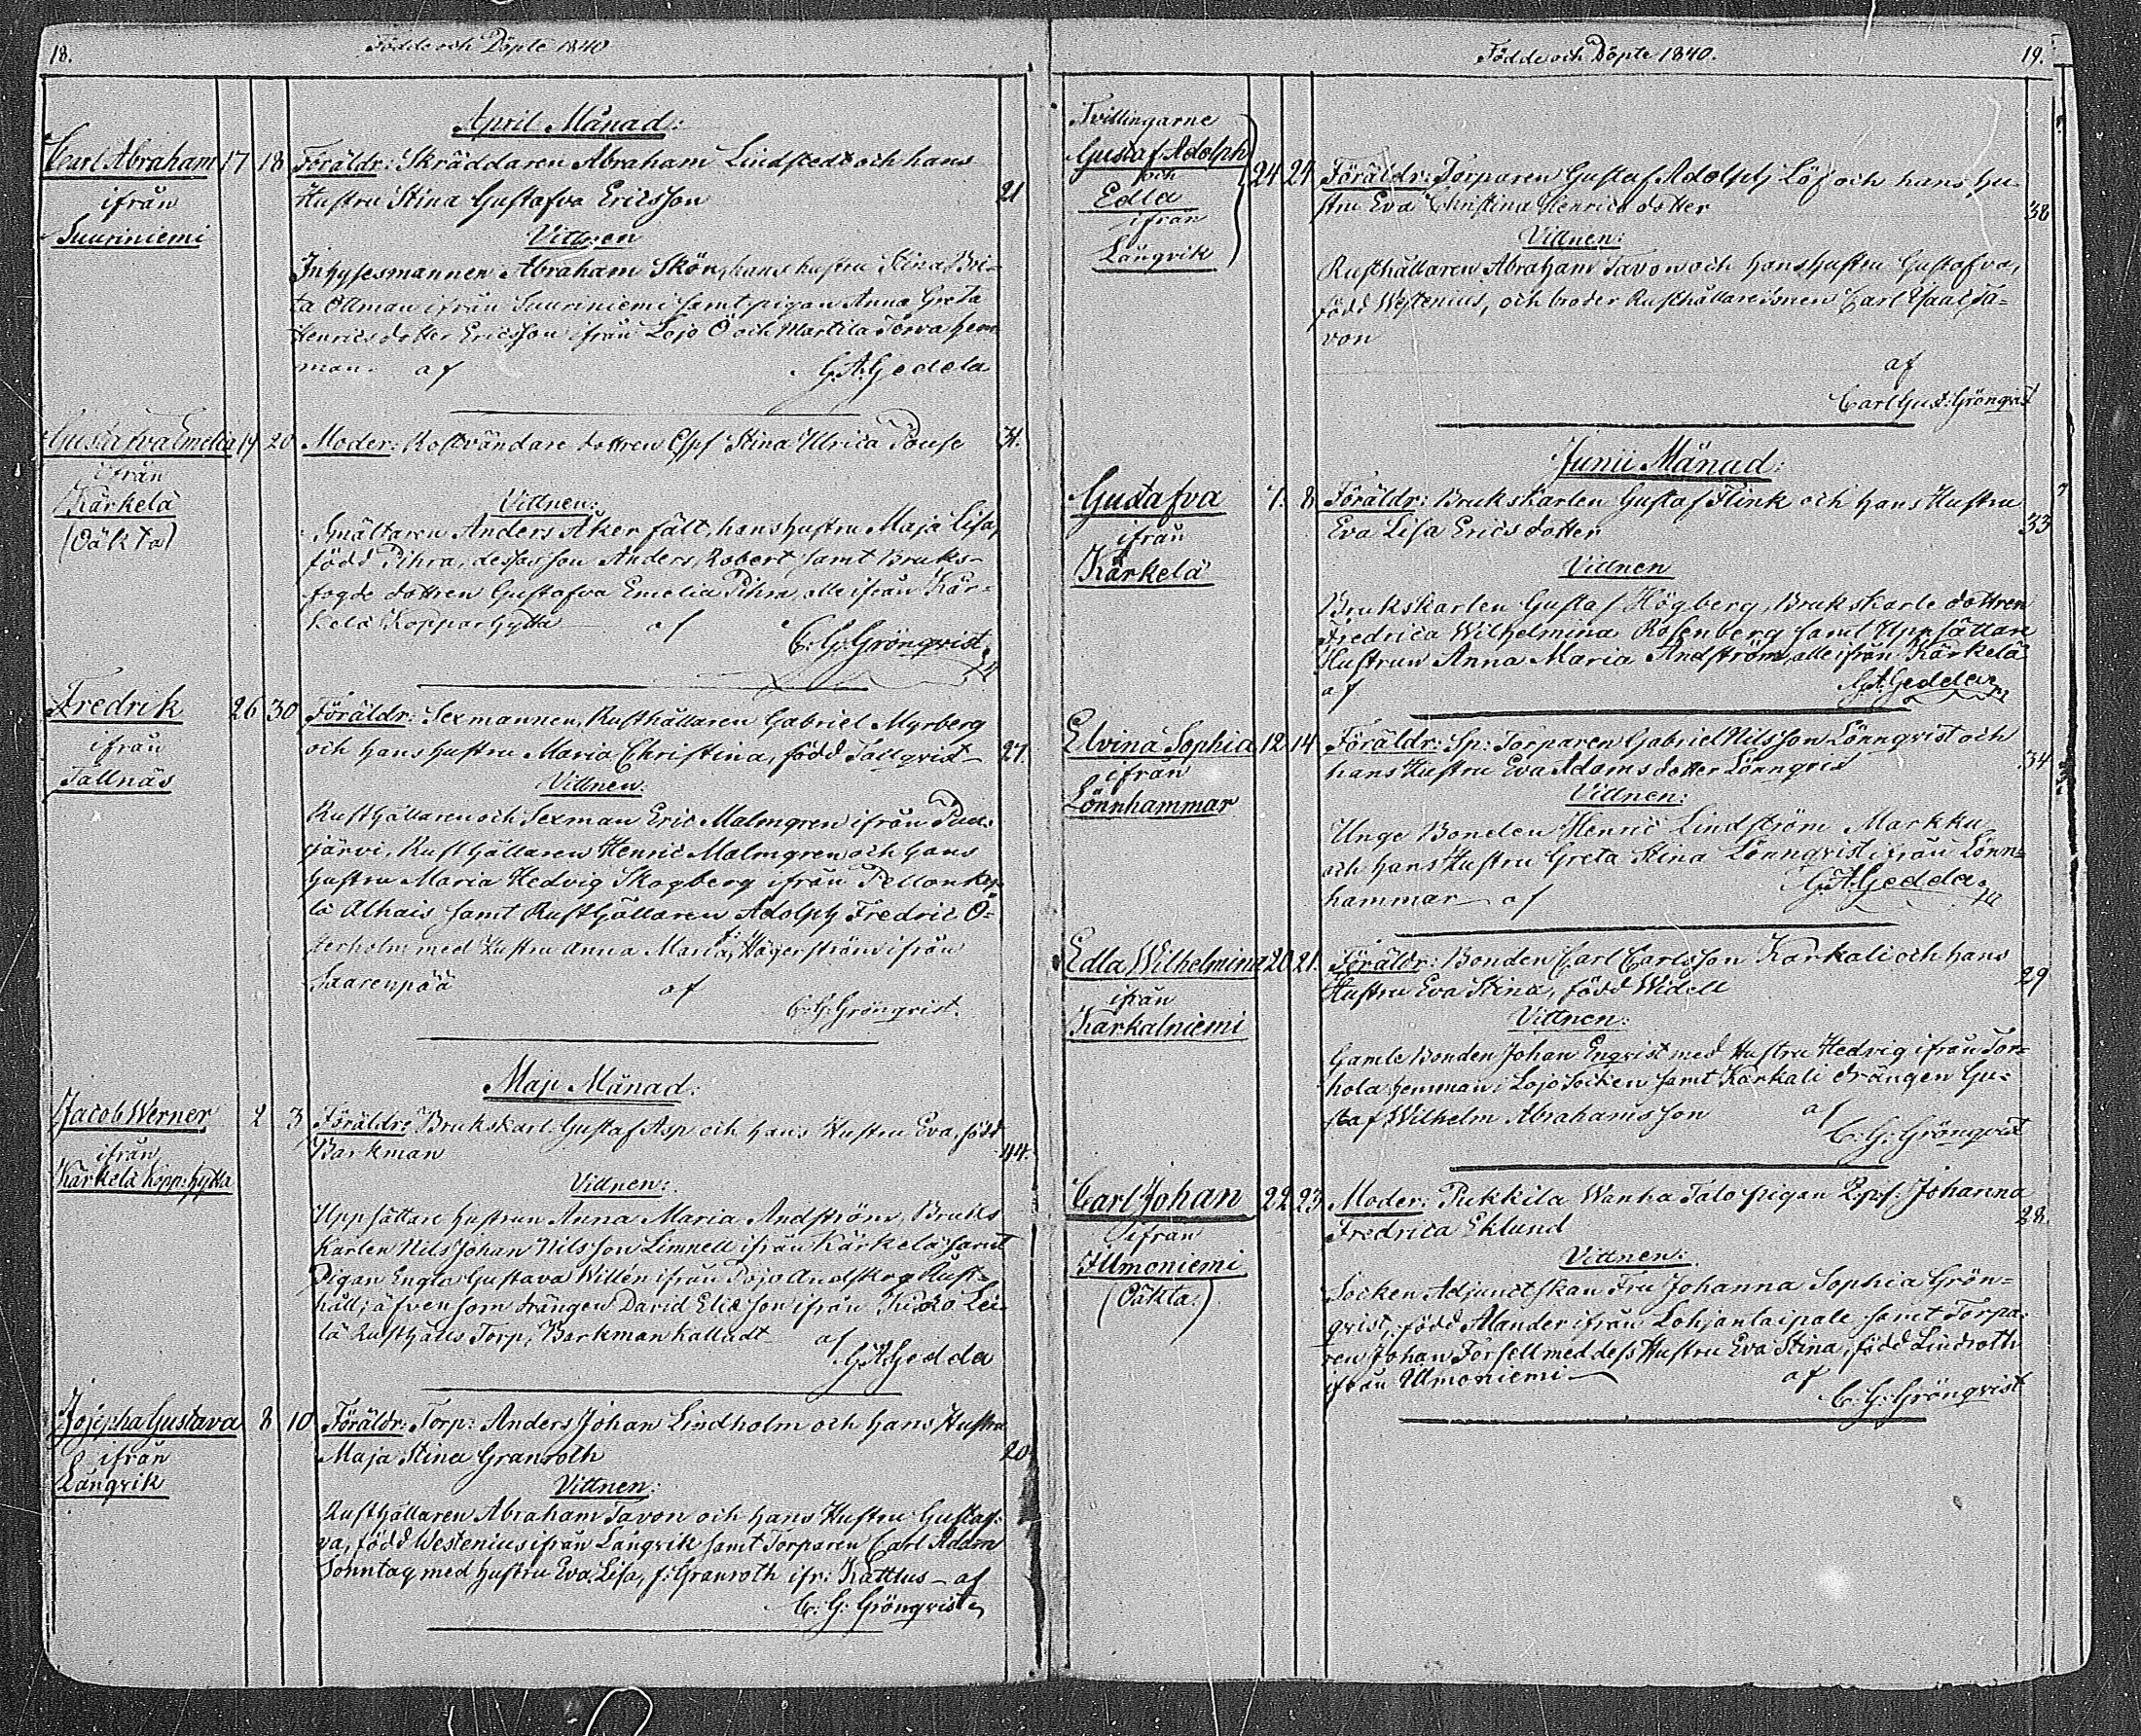 18. Födde och Döpte 1840
April Månad:
Carl Abraham 17 18 Föräldr: Skräddaren Abraham Lindstedt och hans
ifrån Hustru Stina Gustafva Ericsson 21
Suuriniemi Vittnen
Inhysesmannen Abraham Skön, hans hustru Stina Bri-
ta Öllman ifrån Suuriniemi samt pigan Anna Greta
Henricsdotter Ericsson ifrån Lojo Ö och Martila Torva hem
man. af G. A. Gedda
Gustafva Emelia 19 20 Moder: Rostvändare dottren Stina Ulrica Pouse 31.
ifrån
Kärkelä Vittnen:
(Oäkta) Smältaren Anders Åkerfält, hans hustru Maja Lisa,
född Pihra, dessas son Anders Robert samt Bruks-
fogde dottren Gustafva Emelia Pihra, alle ifrån Kär-
kelä Kopparhytta af
C. G. Grönqvist
Fredrik 26 30 Föräldr: Sexmannen, Rusthållaren Gabriel Myrberg
ifrån och hans hustru Maria Christina, född Tallqvist 27.
Tallnäs Vittnen:
Rusthållaren och Sexman Eric Malmgren ifrån Puu-
järvi, Rusthållaren Henric Malmgren och hans
hustru Maria Hedvig Skogberg ifrån Pellonky-
lä Alhais samt Rusthållaren Adolph Fredric Ö-
sterholm med Hustru Anna Maria, f: Hägerström ifrån
Saarenpää af
C. G. Grönqvist.
Maji Månad:
Jacob Werner 2 3 Föräldr: Brukskarl Gustaf Asp och hans Hustru Eva, född
ifrån Barkman 44.
Kärkelä Kopp: hytta Vittnen:
Uppsättare hustrun Anna Maria Andström, Bruks
Karlen Nils Johan Nilsson Limnell ifrån Kärkelä samt
Pigan Engla Gustava Willén ifrån Pojo Andskog Rust-
håll; äfvensom drängen David Elidsson ifrån Kisko Lei-
lä Rusthålls Torp, Barkman kalladt af
G. A. Gedda
Josepha Gustava 8 10 Föräldr: Torp: Anders Johan Lindholm och hans Hustru
ifrån Maja Stina Granroth 20
Långvik Vittnen:
Rusthållaren Abraham Tavon och hans Hustru Gustaf-
va, född Westenius ifrån Långvik samt Torparen Carl Adam
Sonntag med hustru Eva Lisa, f: Granroth ifr: Kattlus – af
C. G. Grönqvist
Födde och Döpte 1840. 19.
Tvillingarne
Gustaf Adolph
och 24 24 Föräldr: Torparen Gustaf Adolph Löf och hans Hu-
Edla stru Eva Christina Henricsdotter 38
ifrån Vittnen:
Långvik Rusthållaren Abraham Tavon och hans hustru Gustafva,
född Westenius, och broder Rusthållaresonen Carl Isaac Ta-
von
af
Carl Gust: Grönqvist
Junii Månad:
Gustafva 7. 8 Föräldr: Brukskarlen Gustaf Flink och hans Hustru
ifrån Eva Lisa Ericsdotter 33
Kärkelä Vittnen
Brukskarlen Gustaf Högberg, Brukskarle dottren
Fredrica Wilhelmina Rosenberg samt Uppsättare
Hustrun Anna Maria Andström, alle ifrån Kärkelä
af G. A. Gedda
Elvina Sophia 12 14 Föräldr: Sp: Torparen Gabriel Nilsson Lönnqvist och
ifrån hans Hustru Eva Adamsdotter Lönnqvist 34
Lönnhammar Vittnen:
Unge Bonden Henric Lindström Markku
och hans Hustru Greta Stina Lönnqvist ifrån Lönn-
hammar af G. A. Gedda
Edla Wilhelmina 20 21. Föräldr: Bonden Carl Carlsson Karkali och hans
ifrån Hustru Eva Stina, född Widell 29
Karkalniemi Vittnen:
Gamle Bonden Johan Enqvist med Hustru Hedvig ifrån Tor-
hola hemman i Lojo Socken samt Karkali drängen Gu-
staf Wilhelm Abrahamsson af
C. G. Grönqvist
Carl Johan 22 23 Moder: Pukkila Wanha Talo pigan Johanna
ifrån Fredrica Eklund 28.
Ilmoniemi Vittnen:
(Oäkta.) Socken Adjunctskan Fru Johanna Sophia Grön-
qvist, född Alander ifrån Lohjantaipale samt Torpa-
ren Johan Forsell med dess Hustru Eva Stina, född Lindroth
ifrån Ilmoniemi – af
C. G. Grönqvist